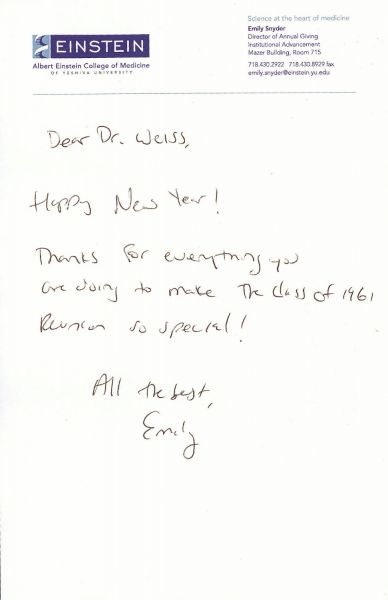 Science at the heart of medicine
Emily Snyder
Director of Annual Giving
Institutional Advancement
Mazer Building, Room 715
718.430.2922 718.430.8929 fax
emily.snyder@einstein.yu.edu
EINSTEIN
Albert Einstein College of Medicine
OF YESHIVA UNIVERSITY
Dear Dr. Weiss,
Happy New Year!
Thanks for everything you
are doing to make The Class of 1961
Reunion so special!
All the best,
Emily